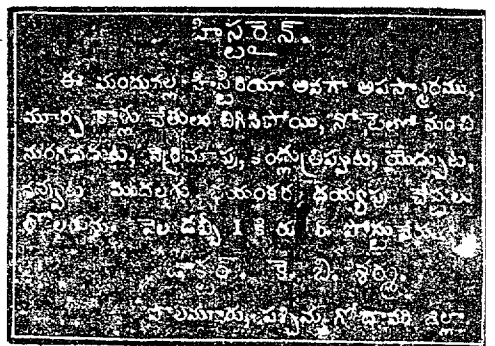 హిస్టరెన్.
ఈ మందువల్ల హిస్టీరియా అనగా అపస్మారము,
మూర్ఛ కాళ్లు చేతులు బిగిసిపోయి, నోటిలో నుంచి
నురగపడుట, కండ్లు త్రిప్పుట, యేడ్చుట,
నవ్వుట మొదలగు భయంకర దయ్యపు చేష్టలు
తొలగును. వెల డబ్బీ 1 కి రు
డాక్టర్. వి. శర్మ.
పశ్చిమ గోదావరి జిల్లా